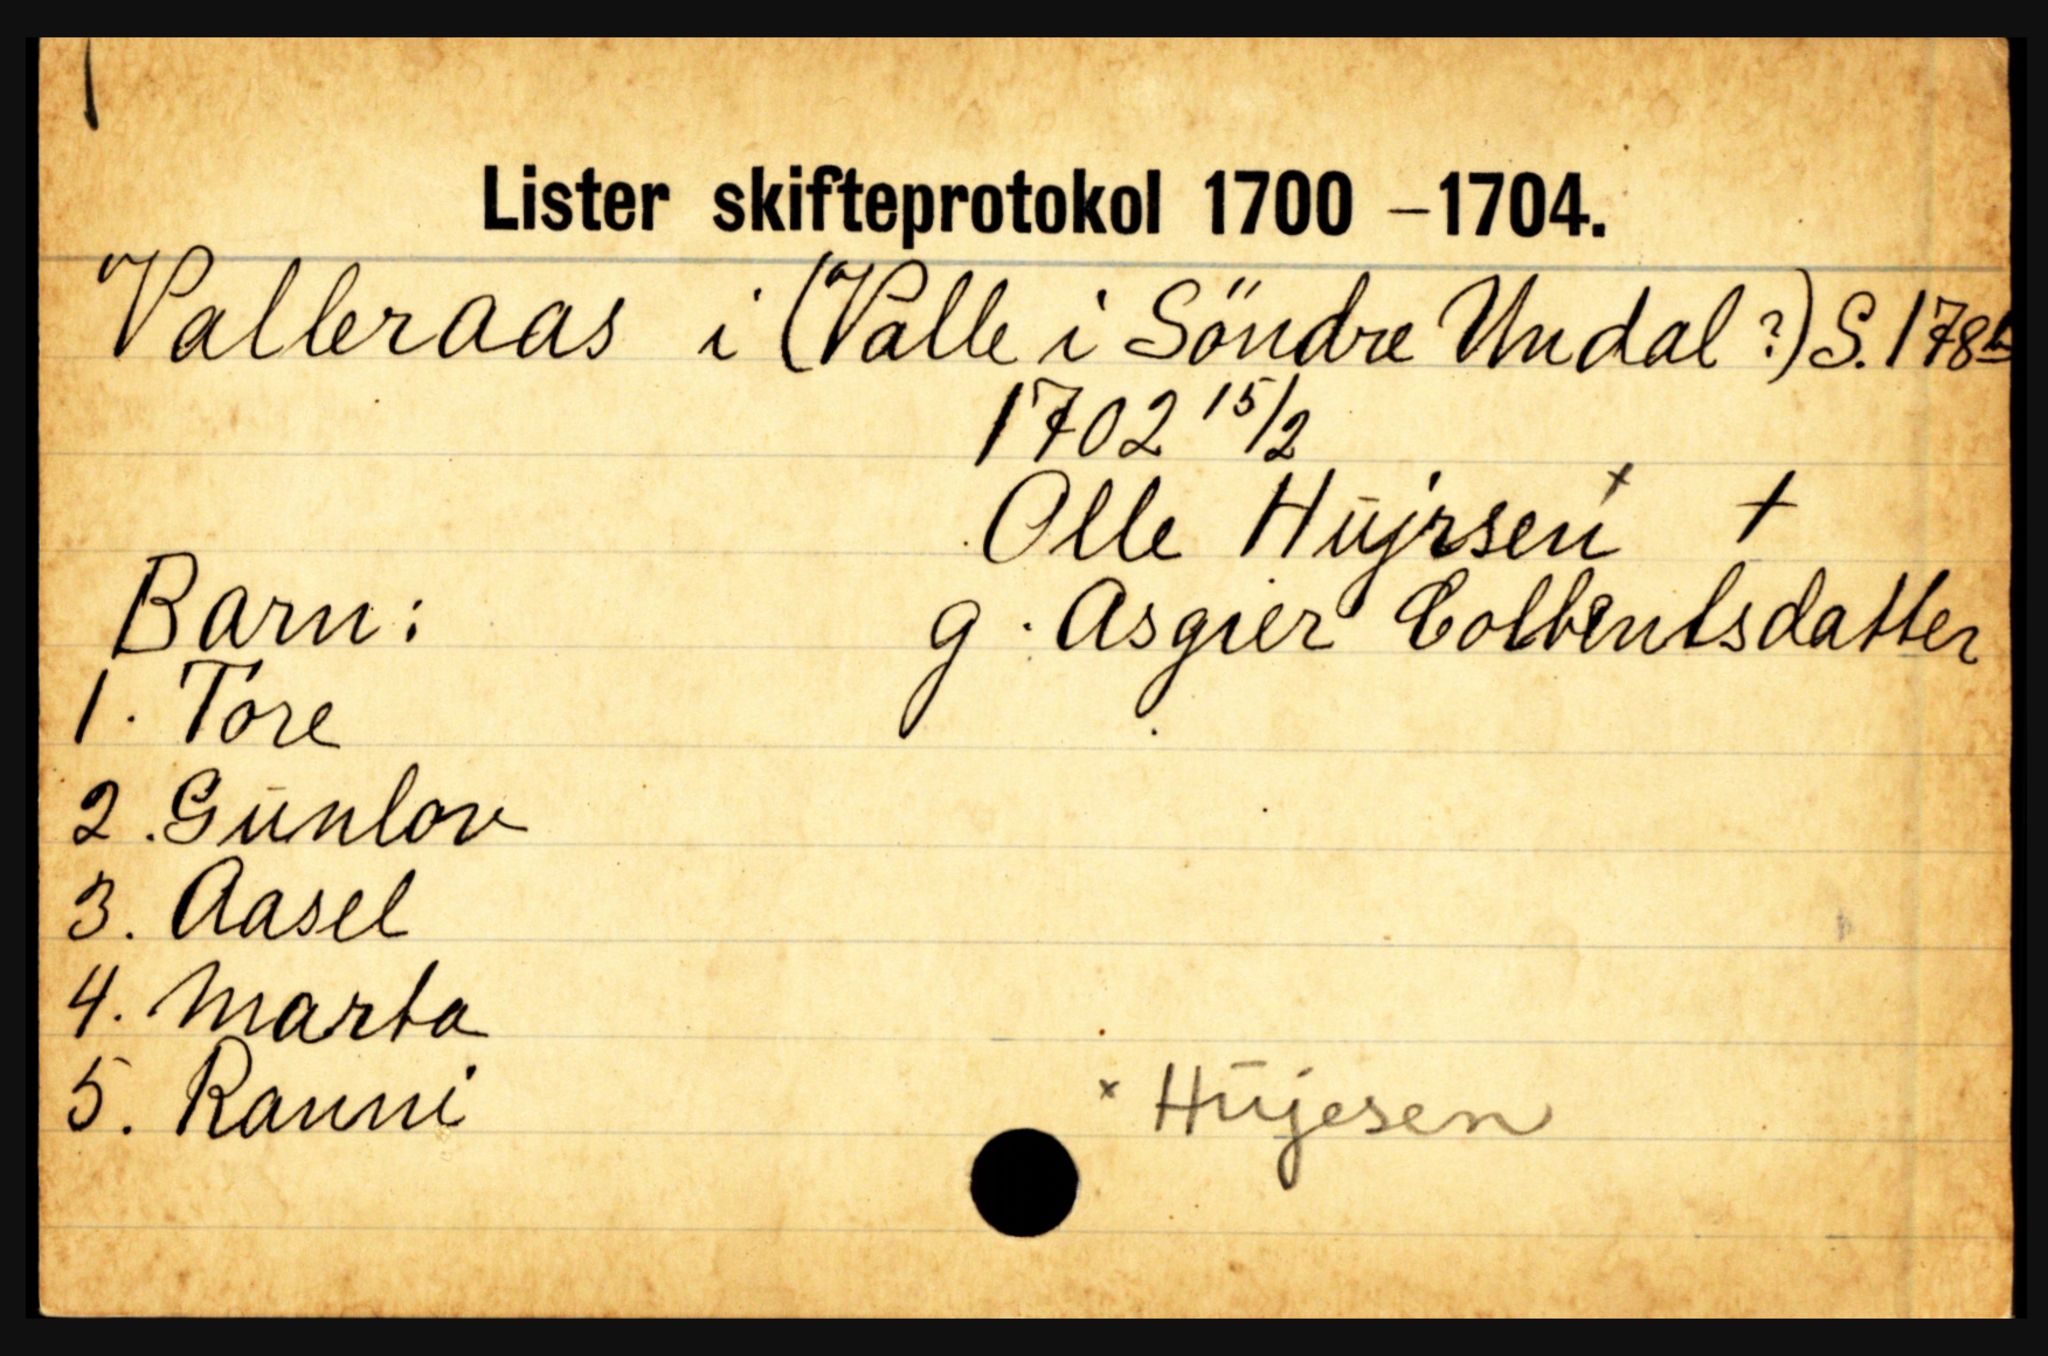 Lister skifteprotokol 1700 – 1704.
Valleraas i (Valle i Söndre Undal ?) S. 178b
1702 15/2
Olle Hūjrsen x +
Barn: g. Asgier Colbentsdatter
1. Tore
2. Gūnlov
3. Aasel
4. Marta
5. Ranni
x Hūjesen